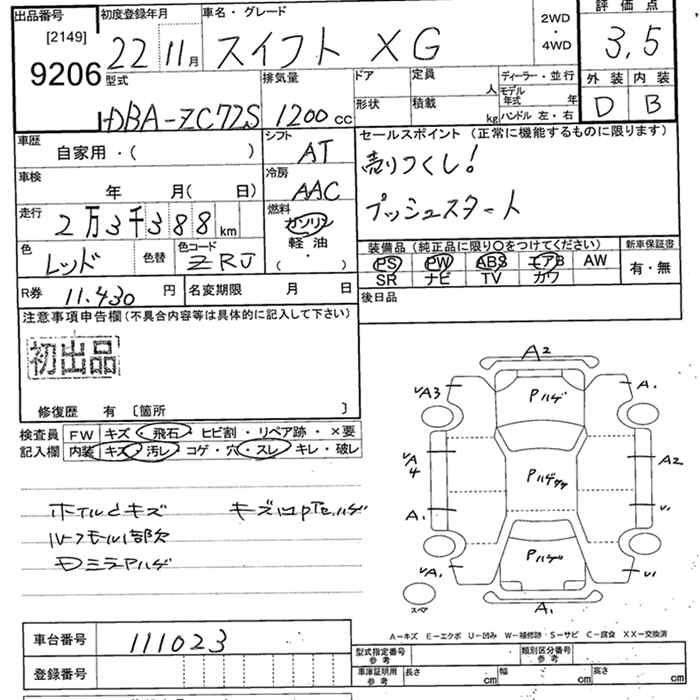 出品番号
[2149]
9206
初度登録年月
22 11月
車名・グレード
スイフト XG
2WD
・
4WD
評価点
3,5
外装 内装
D B
型式
DBA-ZC72S
排気量
1200cc
ドア
定員 人
形状
積載 kg
ディーラー・並行
モデル年式 年
ハンドル 左・右
車歴
自家用・( )
シフト
AT
車検
年 月( 日)
冷房
AAC
走行
2万3千388km
燃料
ガソリン
軽油
( ・ )
色
レッド
色替
色コード
ZRJ
R券
11.430円
名変期限 月 日
セールスポイント(正常に機能するものに限ります)
売りつくし!
プッシュスタート
装備品(純正品に限り○をつけてください)
新車保証書
PS PW ABS エアB AW
有・無
SR ナビ TV カワ
後日品
注意事項申告欄(不具合内容等は具体的に記入して下さい)
初出品
修復歴 有 〔箇所 〕
検査員記入欄
FW キズ・飛石・ヒビ割・リペア跡・×要
内装 キズ・汚レ・コゲ・穴・スレ・キレ・破レ
A2
Pハゲ
√A3
A.
√A4
A2
Pハゲ
A.
√.
Pハゲ
√A.
√1
スペア
A1
A-キズ E-エクボ U-凹み W-補修跡 S-サビ C-腐食 XX-交換済
車台番号
111023
登録番号
型式指定番号
参考
類別区分番号
参考
車庫証明用
参考
長さ cm
幅 cm
高さ cm